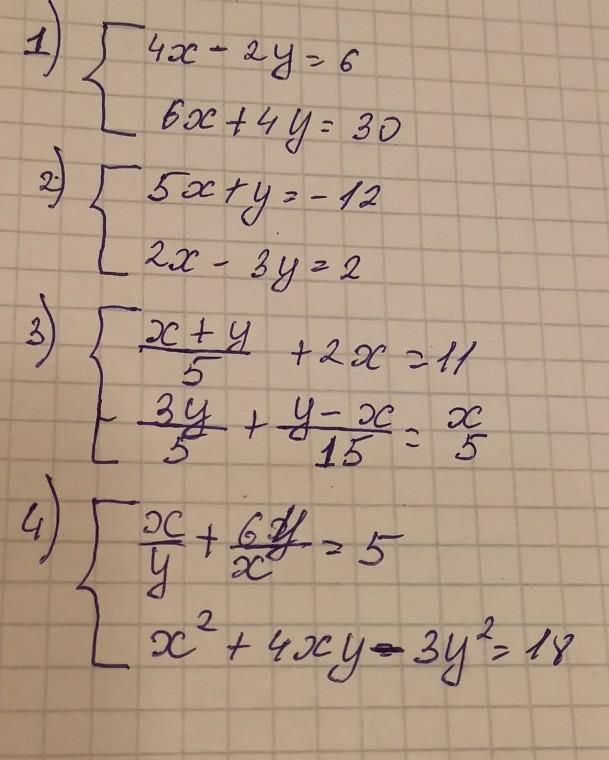 1) { 4x - 2y = 6
6x + 4y = 30
2) { 5x + y = -12
2x - 3y = 2
3) { (x + y)/5 + 2x = 11
3y/5 + (y - x)/15 = x/5
4) { x/y + 6y/x = 5
x² + 4xy - 3y² = 18